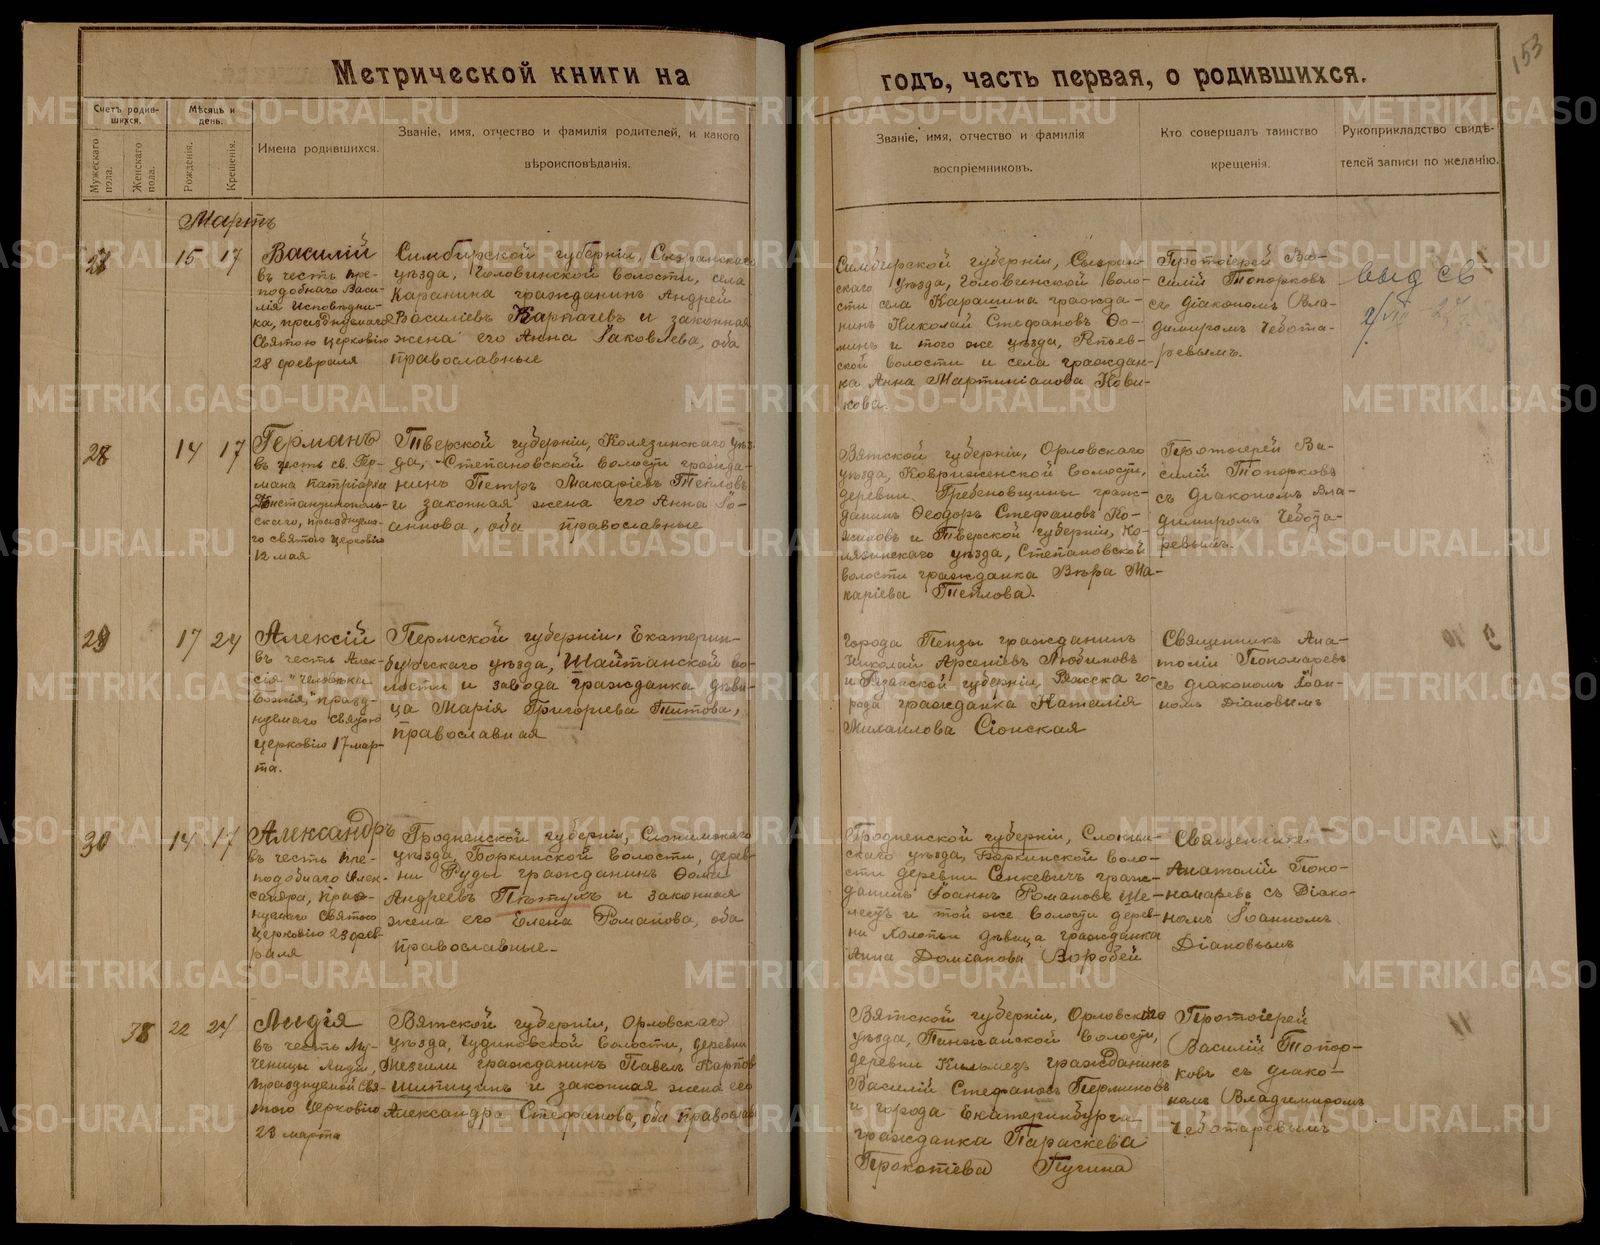 Метрической книги на
годъ, часть первая, о родившихся.
153
Счетъ родив-
шихся.
Мужескаго
пола.
Женскаго
пола.
Мѣсяцъ и
день.
Рожденія.
Крещенія.
Имена родившихся.
Званіе, имя, отчество и фамилія родителей, и какого
вѣроисповѣданія.
Званіе, имя, отчество и фамилія
воспріемниковъ.
Кто совершалъ таинство
крещенія.
Рукоприкладство свидѣ-
телей записи по желанію.
Мартъ
15 17
Василій
въ честь пре-
подобнаго Васи-
лія Исповѣдни-
ка, празднуемаго
Святою церковію
28 февраля
Симбирской губерніи, Сызранскаго
уѣзда, Головинской волости, села
гражданинъ Андрей
Василіевъ и законная
жена его Анна Іаковлева, оба
православные
Симбирской губерніи, Сызран-
скаго уѣзда, Головинской воло-
сти села гражда-
нинъ Николай Стефановъ Ѳо-
минъ и того же уѣзда,
ской волости и села граждан-
ка Анна Мартиніанова Нови-
кова.
Протоіерей Ва-
силій Топорковъ
съ діакономъ Вла-
димиромъ Чебота-
ревымъ.
выд св
28
14 17
Германъ
въ честь св. Гер-
мана патріарха
Константинополь-
скаго, празднуема-
го святою церковію
12 мая
Тверской губерніи, Колязинскаго уѣз-
да, Степановской волости гражда-
нинъ Петръ Макаріевъ Тепловъ
и законная жена его Анна Іо-
аннова, оба православные
Вятской губерніи, Орловскаго
уѣзда, волости,
деревни Гребеновщины граж-
данинъ Ѳеодоръ Стефановъ Ко-
жиховъ и Тверской губерніи, Ко-
лязинскаго уѣзда, Степановской
волости гражданка Вѣра Ма-
каріева Теплова.
Протоіерей Ва-
силій Топорковъ
съ діакономъ Вла-
димиромъ Чебота-
ревымъ.
29
17 24
Алексій
въ честь Алек-
сія "человѣка
Божія," празд-
нуемаго святою
церковію 17 мар-
та.
Пермской губерніи, Екатерин-
бургскаго уѣзда, Шайтанской во-
лости и завода гражданка дѣви-
ца Марія Григориева Титова,
православная
Города Пензы гражданинъ
Николай Арсеніевъ Любимовъ
и Рязанской губерніи Ряжска го-
рода гражданка Наталія
Михаилова Сіонская
Священникъ Ана-
толій Пономаревъ
съ діакономъ Іоан-
номъ Діаковымъ
30
14 17
Александръ
въ честь пре-
подобнаго Алек-
сандра, празд-
нуемаго Святою
Церковію 23 фев-
раля
Гродненской губерніи, Слонимскаго
уѣзда, Боркинской волости, дерев-
ни Руды гражданинъ Ѳома
Андреевъ и законная
жена его Елена Романова, оба
православные.
Гродненской губерніи, Слоним-
скаго уѣзда, Боркинской воло-
сти деревни Сенкевичъ граж-
данинъ Іоаннъ Романовъ Ше-
лестъ и той же волости дерев-
ни Холопьи дѣвица гражданка
Анна Доміанова Воробей
Священникъ
Анатолій Поно-
номаревъ съ Діако-
номъ Іоанномъ
Діаковымъ
38 22 24
Лидія
въ честь Му-
ченицы Лидіи,
празднуемой Свя-
того Церковію
23 марта
Вятской губерніи, Орловскаго
уѣзда, Чудиновской волости, деревни
гражданинъ Павелъ Карповъ
Шипицынъ и законная жена его
Александра Стефанова, оба православные
Вятской губерніи, Орловскаго
уѣзда, Пинжанской волости,
деревни Кильмезъ гражданинъ
Василій Стефановъ Перминовъ
и города Екатеринбурга
гражданка Параскева
Прокопіева Пугина
Протоіерей
Василій Топор-
ковъ съ діако-
номъ Владимиромъ
Чеботаревымъ
METRIKI.GASO-URAL.RU